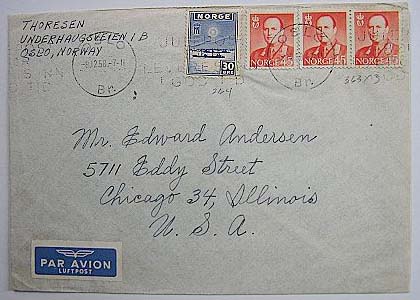 THORESEN
UNDERHAUGSVEIEN 1 B
OSLO, NORWAY
NORGE
30
ØRE
NORGE 45
NORGE 45
NORGE 45
Br.
Br.
264
363x3
Mr. Edward Andersen
5711 Eddy Street
Chicago 34, Illinois
U. S. A.
PAR AVION
LUFTPOST